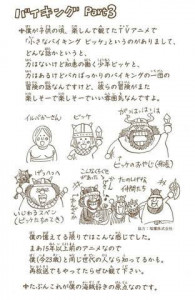 バイキング Part3
僕が子供の頃、楽しんで観てたTVアニメで
「小さなバイキング ビッケ」というのがありまして、
どんな話かというと、
力はないけど知恵の働く少年ビッケと、
力はあるけどバカばっかりのバイキングの一団の
冒険の話なんですけど、彼らの冒険がまた
楽しそーで楽しそーでいい雰囲気なんですよ。
ビッケ
ビッケのおやじ(船長)
こんなくらい
仲間たち
僕の憶えてる限りではこんな感じでした。
まぁ15年以上前のアニメなので
僕(今23歳)と同じ世代の人なら知ってるかも。
再放送でもやってたらぜひ観て下さい。
たぶんこれが僕の海賊好きの原点なのです。